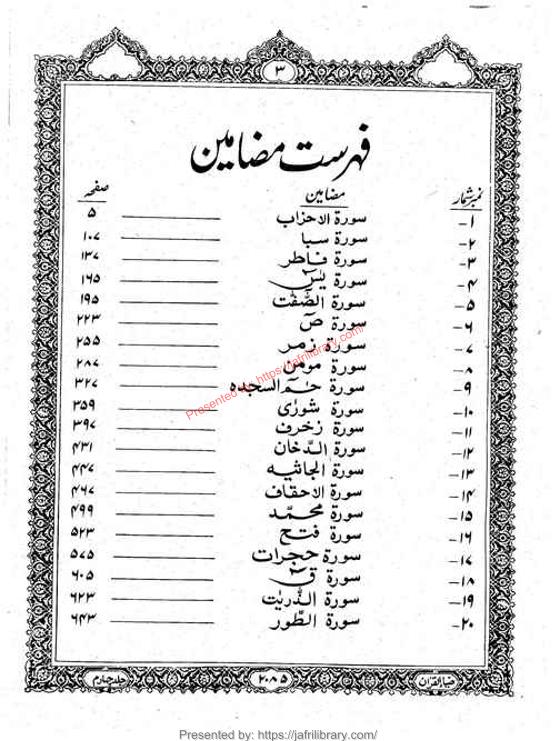 ۳
فہرست مضامین
نمبر شمار مضامین صفحہ
۱- سورۃ الاحزاب ۵
۲- سورۃ سبا ۱۰۷
۳- سورۃ فاطر ۱۳۷
۴- سورۃ یٰسٓ ۱۶۵
۵- سورۃ الصّٰفّٰت ۱۹۵
۶- سورۃ صٓ ۲۲۳
۷- سورۃ زمر ۲۵۵
۸- سورۃ مومن ۲۸۷
۹- سورۃ حٰمٓ السجدہ ۳۲۷
۱۰- سورۃ شورٰی ۳۵۹
۱۱- سورۃ زخرف ۳۹۷
۱۲- سورۃ الدّخان ۴۳۱
۱۳- سورۃ الجاثیہ ۴۴۷
۱۴- سورۃ الاحقاف ۴۶۷
۱۵- سورۃ محمّد ۴۹۹
۱۶- سورۃ فتح ۵۲۳
۱۷- سورۃ حجرات ۵۷۵
۱۸- سورۃ قٓ ۶۰۵
۱۹- سورۃ الذّریٰت ۶۲۳
۲۰- سورۃ الطّور ۶۴۳
Presented by: https://jafrilibrary.com/
ضیاالقرآن ۲۰۸۵ جلد چہارم
Presented by: https://jafrilibrary.com/